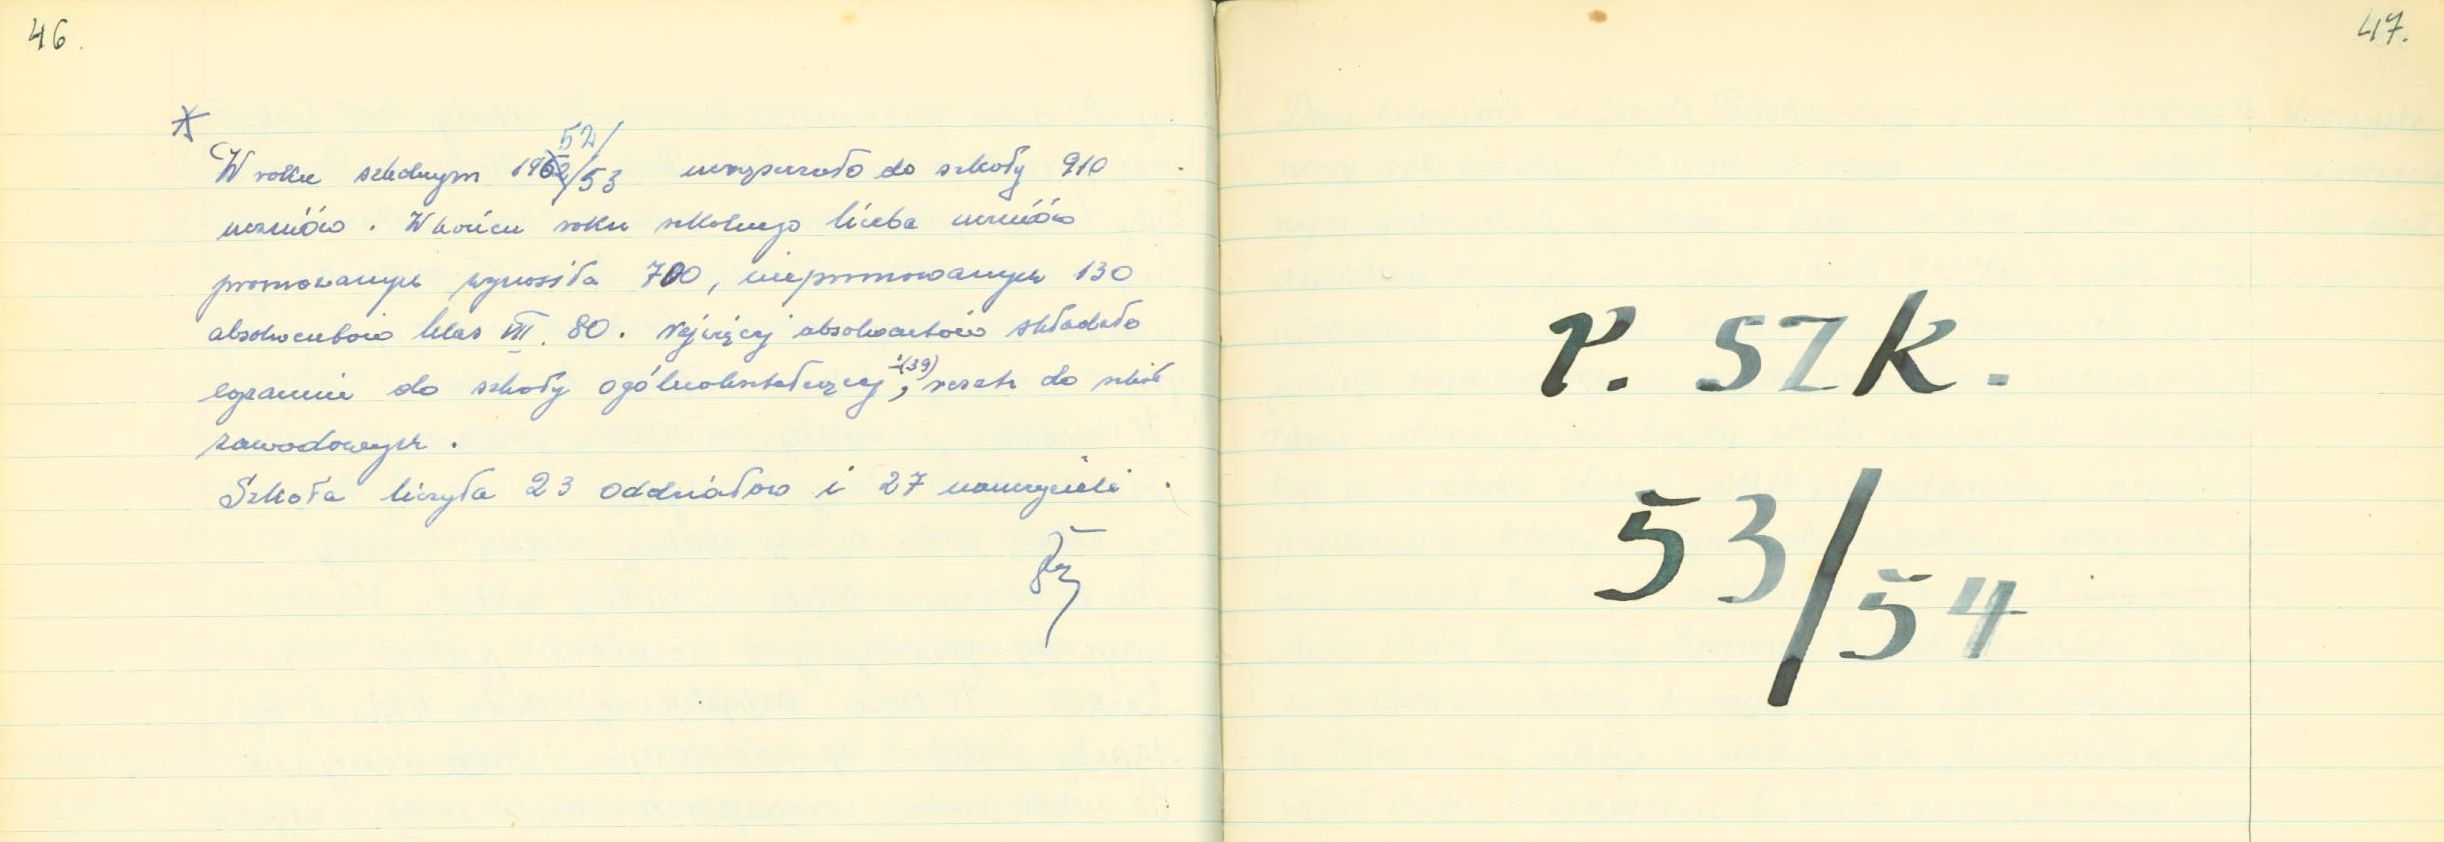 46.
*
52/
W roku szkolnym 1952/53 uczęszczało do szkoły 910
uczniów. W końcu roku szkolnego liczba uczniów
promowanych wynosiła 700, niepromowanych 130
absolwentów klas VII. 80. Najwięcej absolwentów składało
egzamin do szkoły ogólnokształcącej -(39), reszta do szkół
zawodowych.
Szkoła liczyła 23 oddziałów i 27 nauczycieli.
47.
r. szk.
53/54